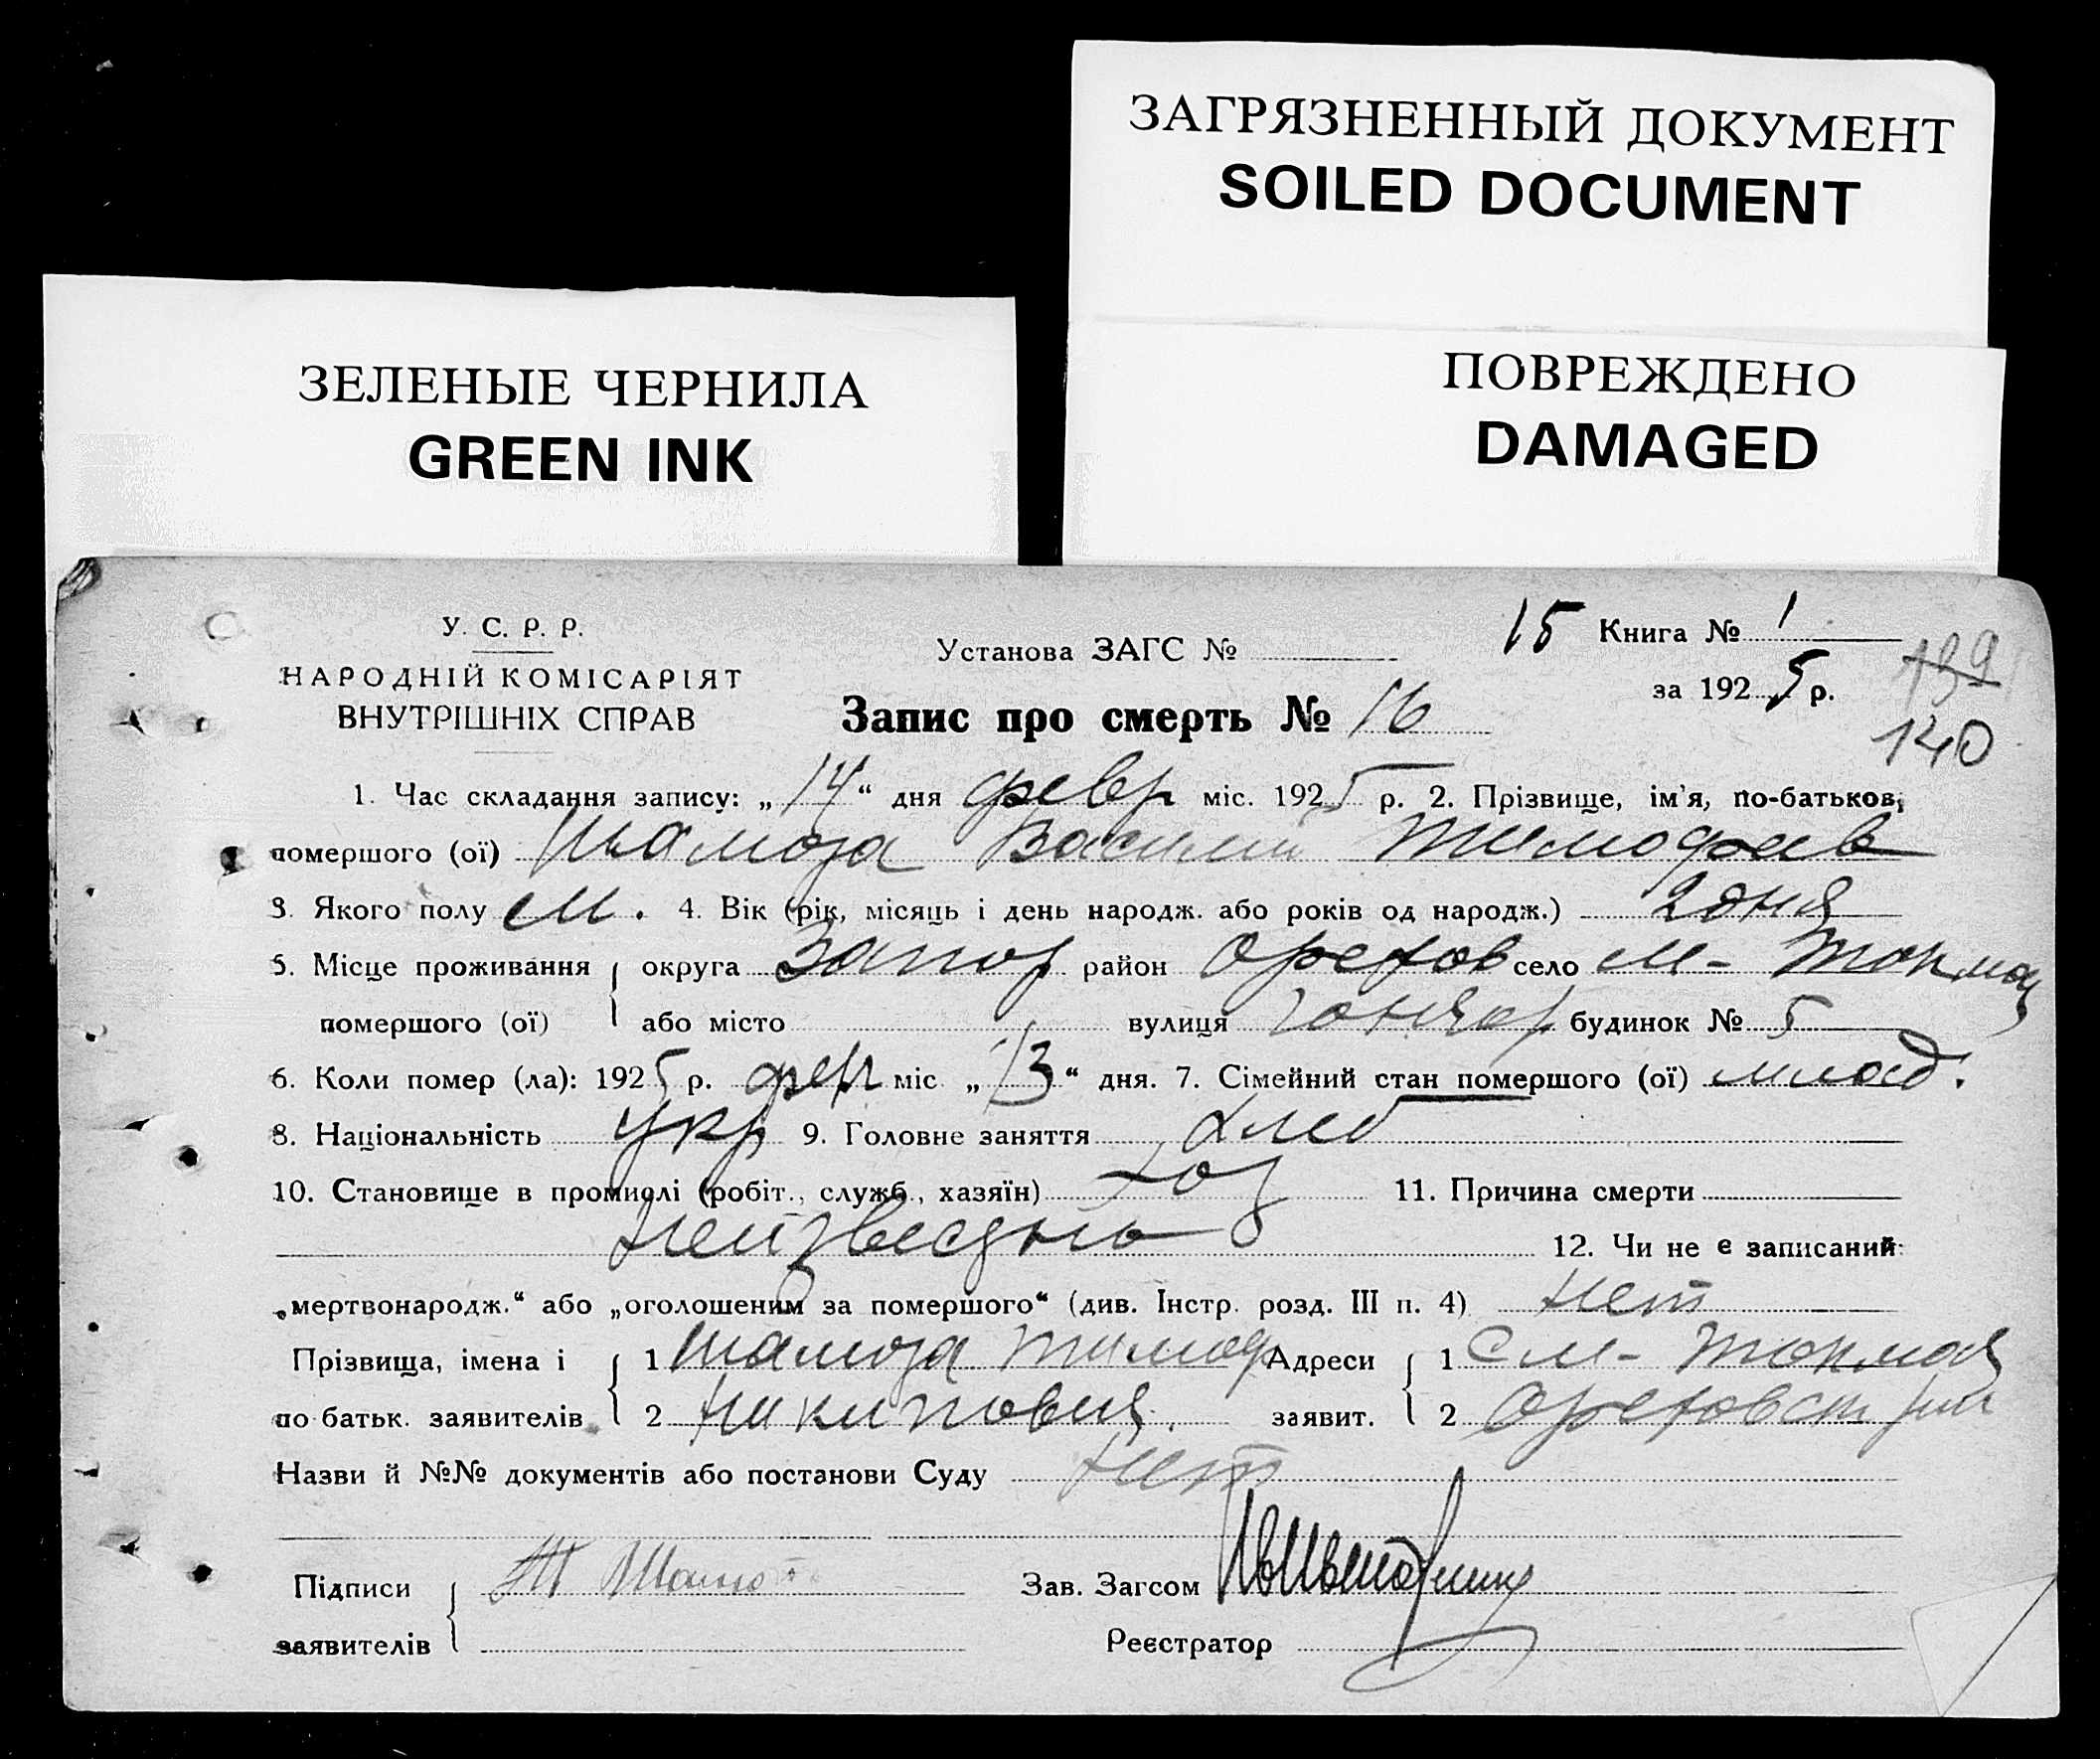 ЗАГРЯЗНЕННЫЙ ДОКУМЕНТ
SOILED DOCUMENT
ЗЕЛЕНЫЕ ЧЕРНИЛА
GREEN INK
ПОВРЕЖДЕНО
DAMAGED
У. С. Р. Р.
НАРОДНІЙ КОМІСАРІЯТ
ВНУТРІШНІХ СПРАВ
Установа ЗАГС №
15 Книга № 1
за 1925 р.
139
140
Запис про смерть № 16
1. Час складання запису: „14“ дня февр міс. 1925 р. 2. Прізвище, ім'я, по-батьков,
помершого (ої) Шамота Василий Тимофеев
3. Якого полу м. 4. Вік (рік, місяць і день народж. або років од народж.) 2 дня
5. Місце проживання округа Запор район Орехов село М-Токмач
помершого (ої) або місто вулиця Гончар будинок № 5
6. Коли помер (ла): 1925 р. февр міс „13“ дня. 7. Сімейний стан помершого (ої) млад.
8. Національність Укр 9. Головне заняття Хлеб
10. Становище в промислі (робіт., служб., хазяїн) Хоз 11. Причина смерти
Неизвестно 12. Чи не є записаний:
„мертвонародж.“ або „оголошеним за помершого“ (див. Інстр. розд. III п. 4) нет
Прізвища, імена і 1 Шамота Тимоф Адреси 1 С М-Токмач
по батьк. заявителів 2 Никипович. заявит. 2 Ореховск
Назви й №№ документів або постанови Суду Нет
Підписи Т Шамо Зав. Загсом
заявителів Реєстратор